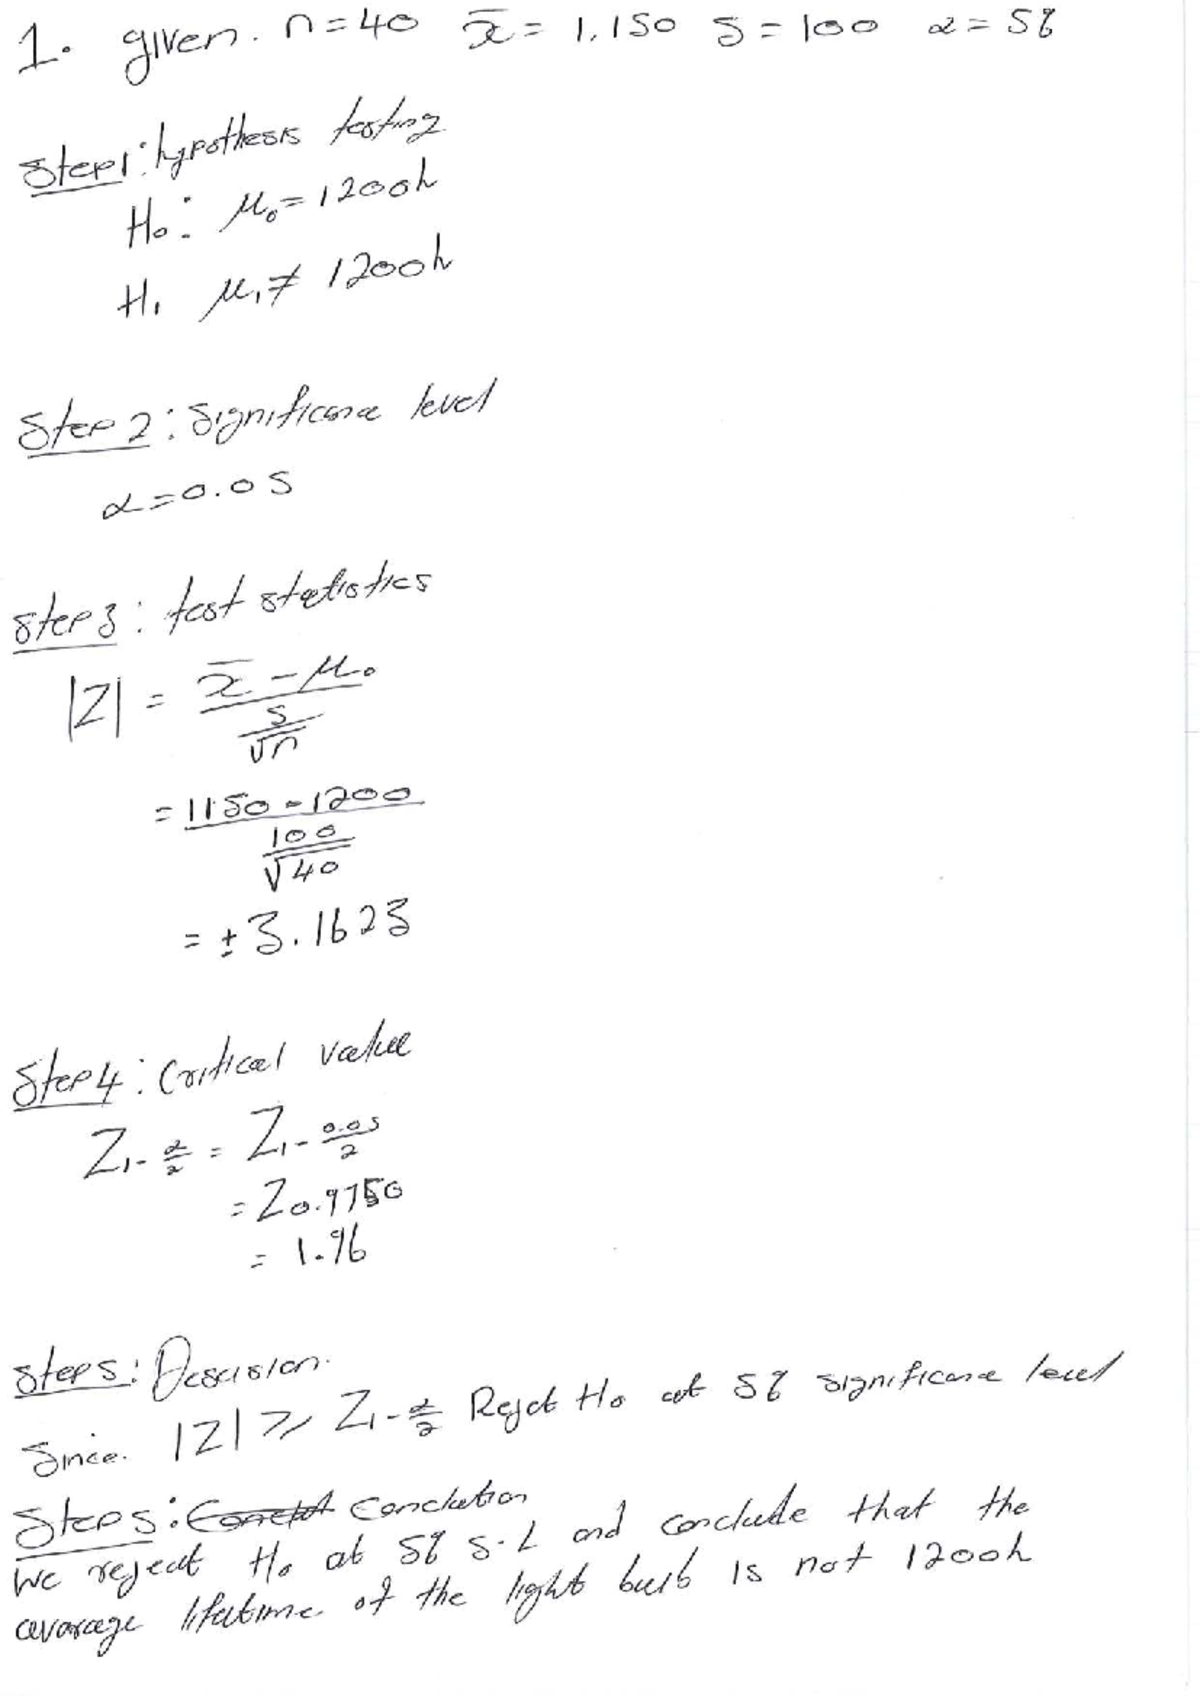 1. given. n=40 x̄ = 1,150 s = 100 α = 5%
Step1: hypothesis testing
H₀: μ₀ = 1200h
H₁ μ₁ ≠ 1200h
Step 2: Significance level
α=0.05
Step 3: test statistics
|Z| = (x̄ - μ₀) / (s/√n)
= (1150 - 1200) / (100/√40)
= ± 3.1623
Step 4: Critical value
Z₁₋α/₂ = Z₁₋₀.₀₅/₂
= Z₀.₉₇₅₀
= 1.96
Step 5: Descision.
Since. |Z| ≥ Z₁₋α/₂ Reject H₀ at 5% significance level
Step 5: Conclution
We reject H₀ at 5% S.L and conclude that the
avarage lifetime of the light bulb is not 1200h